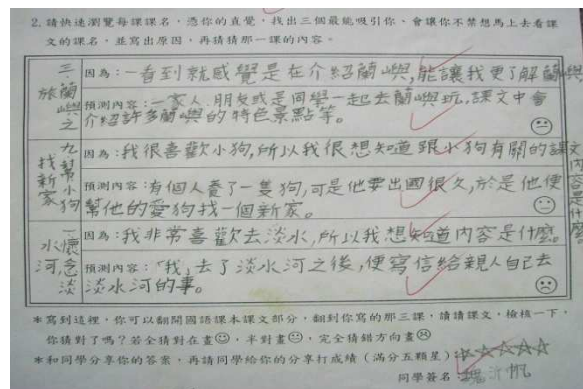 2. 請快速瀏覽每課課名，憑你的直覺，找出三個最能吸引你、會讓你不禁想馬上去看課
文的課名，並寫出原因，再猜猜那一課的內容。
三、蘭嶼之旅
因為：一看到就感覺是在介紹蘭嶼,能讓我更了解蘭嶼
預測內容：一家人.朋友或是同學一起去蘭嶼玩,課文中會
介紹許多蘭嶼的特色景點等。
九、幫小狗找新家
因為：我很喜歡小狗,所以我很想知道跟小狗有關的課文內容是什麼
預測內容：有個人養了一隻狗,可是他要出國很久,於是他便
幫他的愛狗找一個新家。
二、懷念淡水河
因為：我非常喜歡去淡水,所以我想知道內容是什麼。
預測內容：「我」去了淡水河之後,便寫信給親人自己去
淡水河的事。
*寫到這裡，你可以翻開國語課本課文部分，翻到你寫的那三課，讀讀課文，檢核一下，
你猜對了嗎？若全猜對在畫☺，半對畫😐，完全猜錯方向畫☹
*和同學分享你的答案，再請同學給你的分享打成績（滿分五顆星）：☆☆☆☆☆
同學簽名：